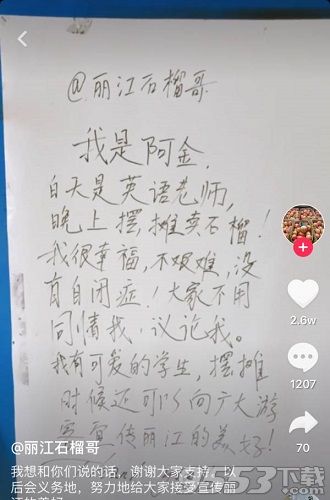 @丽江石榴哥
我是阿金,
白天是英语老师,
晚上摆摊卖石榴!
我很幸福,不艰难,没
有自闭症!大家不用
同情我、议论我。
我有可爱的学生,摆摊
时候还可以向广大游
客宣传丽江的美好!
2.6w
1207
70
@丽江石榴哥
我想和你们说的话,谢谢大家支持,以
后会义务地,努力地给大家接受宣传丽
江的美好